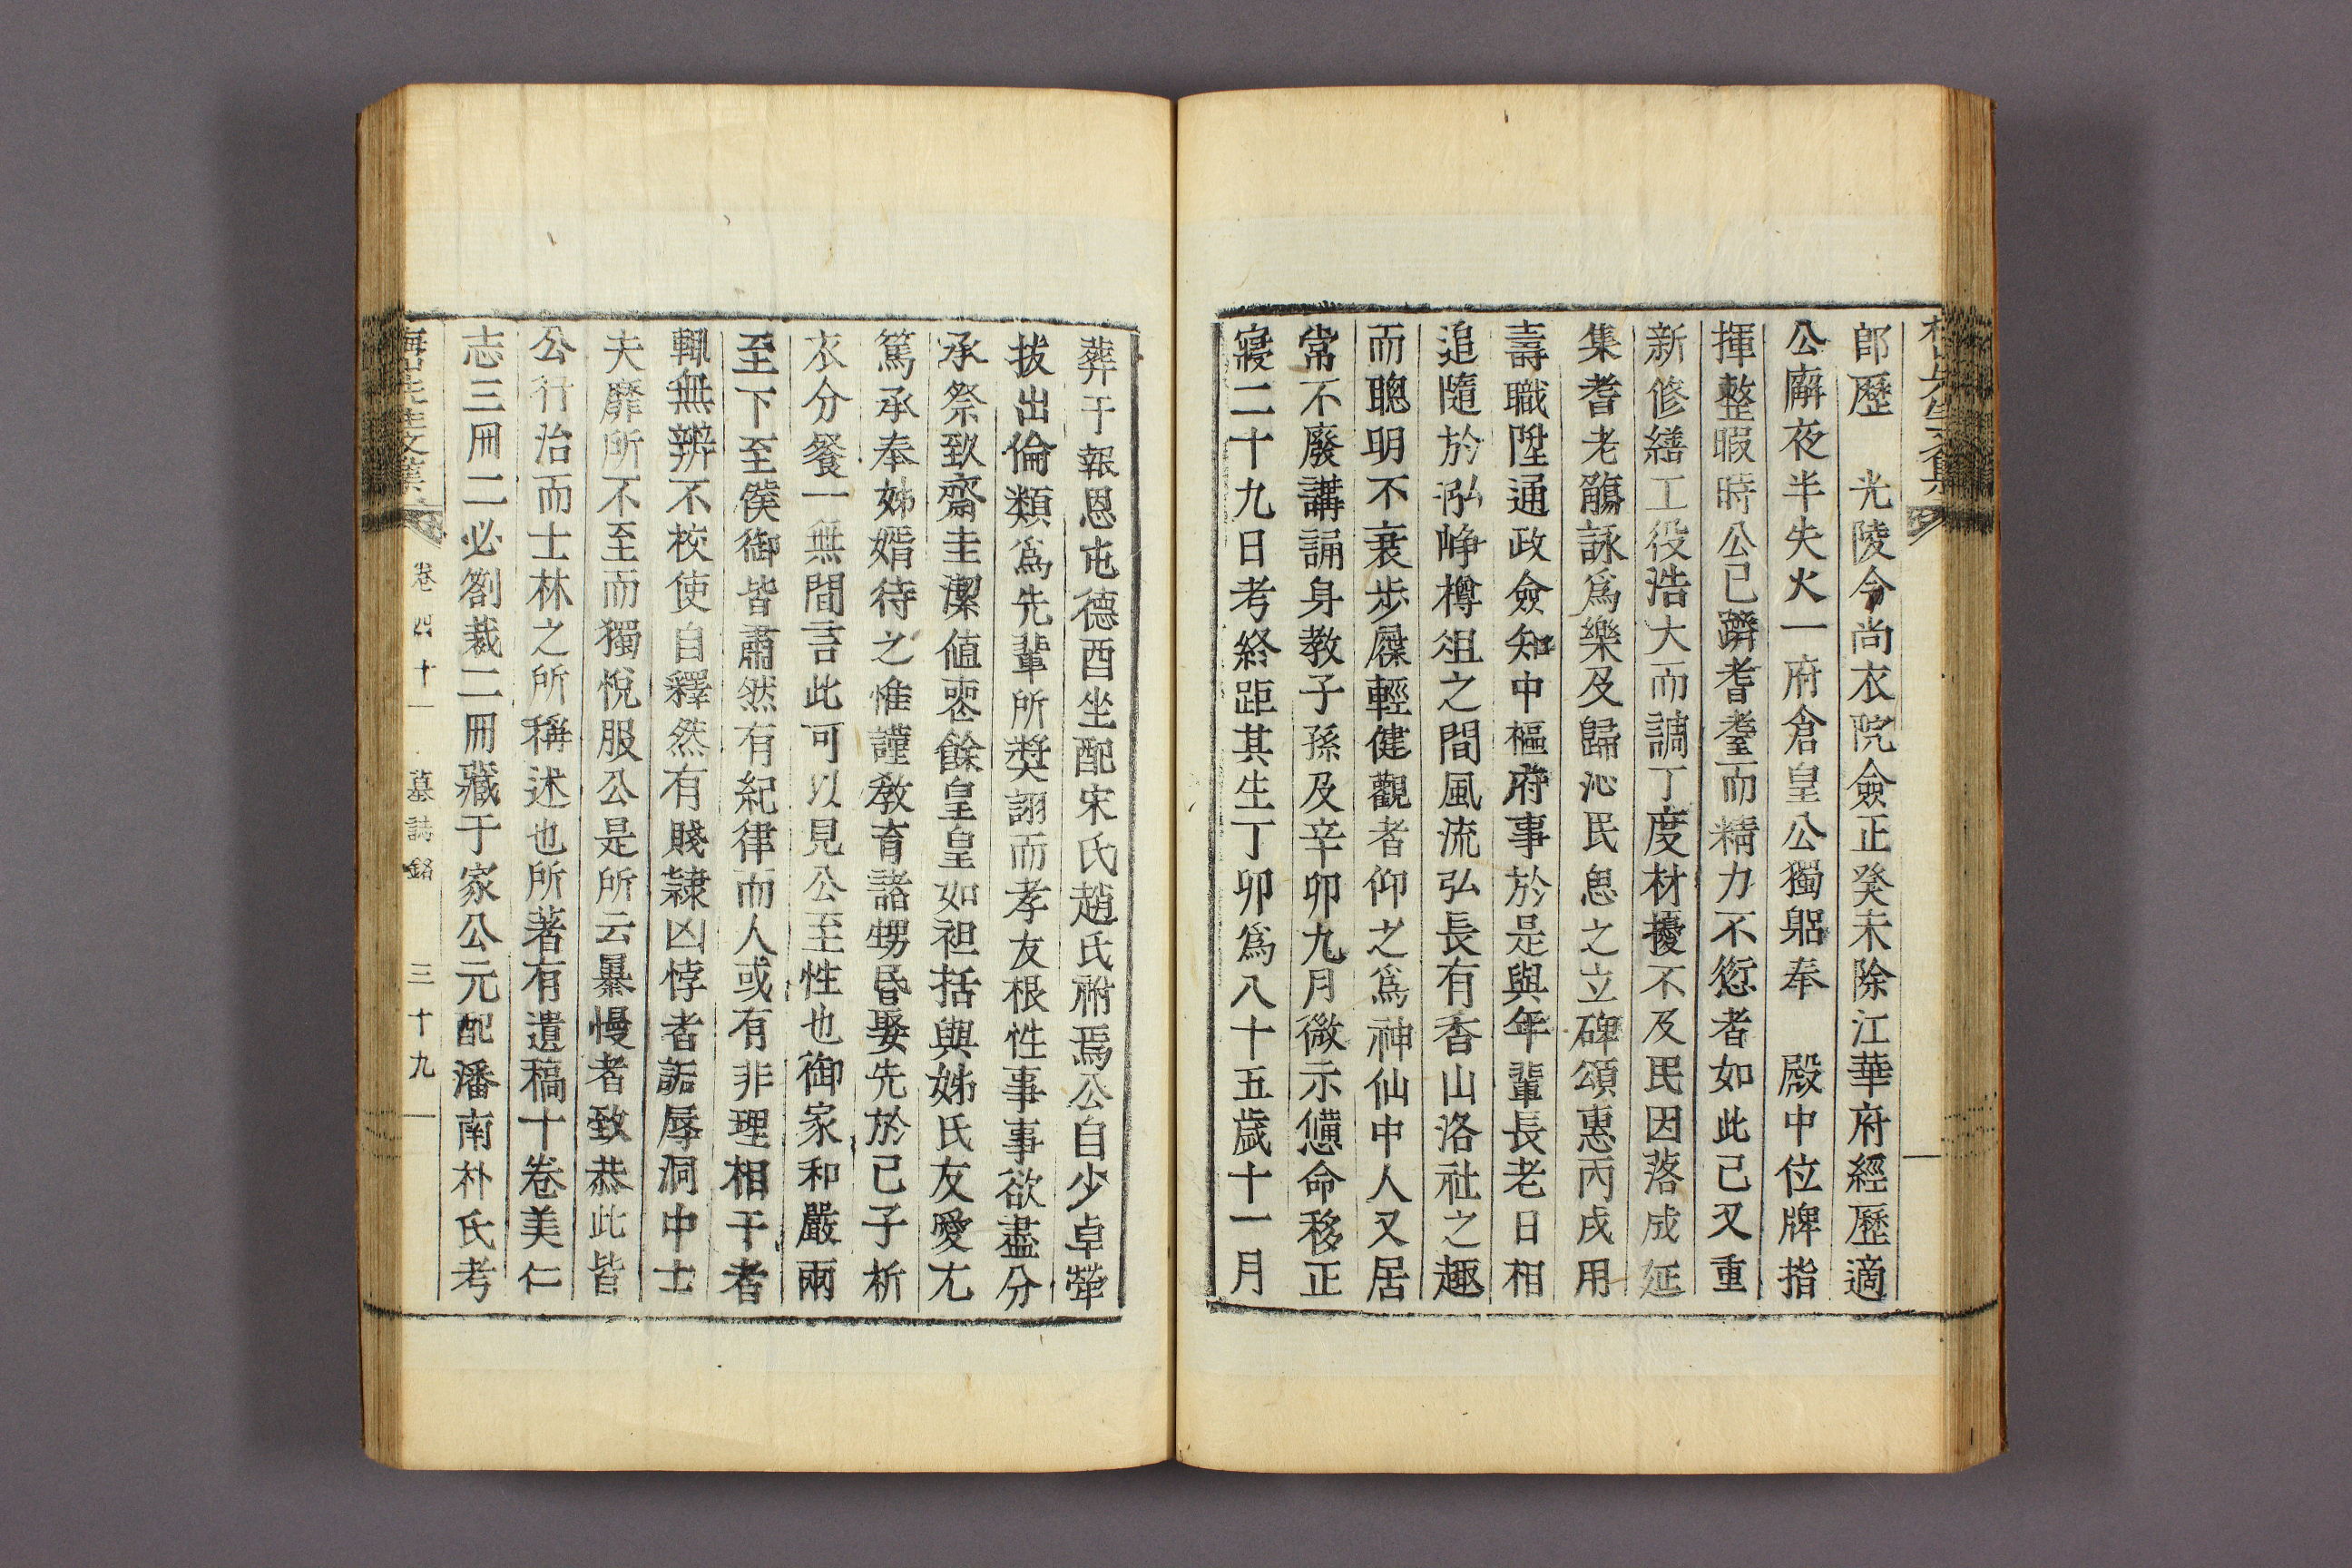 郎歷　光陵令尚衣院僉正癸未除江華府經歷適
公廨夜半失火一府倉皇公獨躬奉　殿中位牌指
揮整暇時公已躋耆耋而精力不愆者如此已又重
新修繕工役浩大而調丁度材擾不及民因落成延
集耆老觴詠爲樂及歸沁民思之立碑頌惠丙戌用
壽職陞通政僉知中樞府事於是與年輩長老日相
追隨於泓崢樽俎之間風流弘長有香山洛社之趣
而聰明不衰步屧輕健觀者仰之爲神仙中人又居
常不廢講誦身教子孫及辛卯九月微示憊命移正
寢二十九日考終距其生丁卯爲八十五歲十一月
葬于報恩屯德酉坐配宋氏趙氏祔焉公自少卓犖
拔出倫類爲先輩所奬詡而孝友根性事事欲盡分
承祭致齋圭潔値喪餘皇皇如袒括與姊氏友愛尤
篤承奉姊婿待之惟謹敎育諸甥昏娶先於己子析
衣分餐一無間言此可以見公至性也御家和嚴兩
至下至傔御皆肅然有紀律而人或有非理相干者
輒無辨不校使自釋然有賤隷凶悖者詬辱洞中士
夫靡所不至而獨悅服公是所云暴慢者致恭此皆
公行治而士林之所稱述也所著有遺稿十卷美仁
志三冊二必箚裁二冊藏于家公元配潘南朴氏考
卷四十一　墓誌銘　三十九